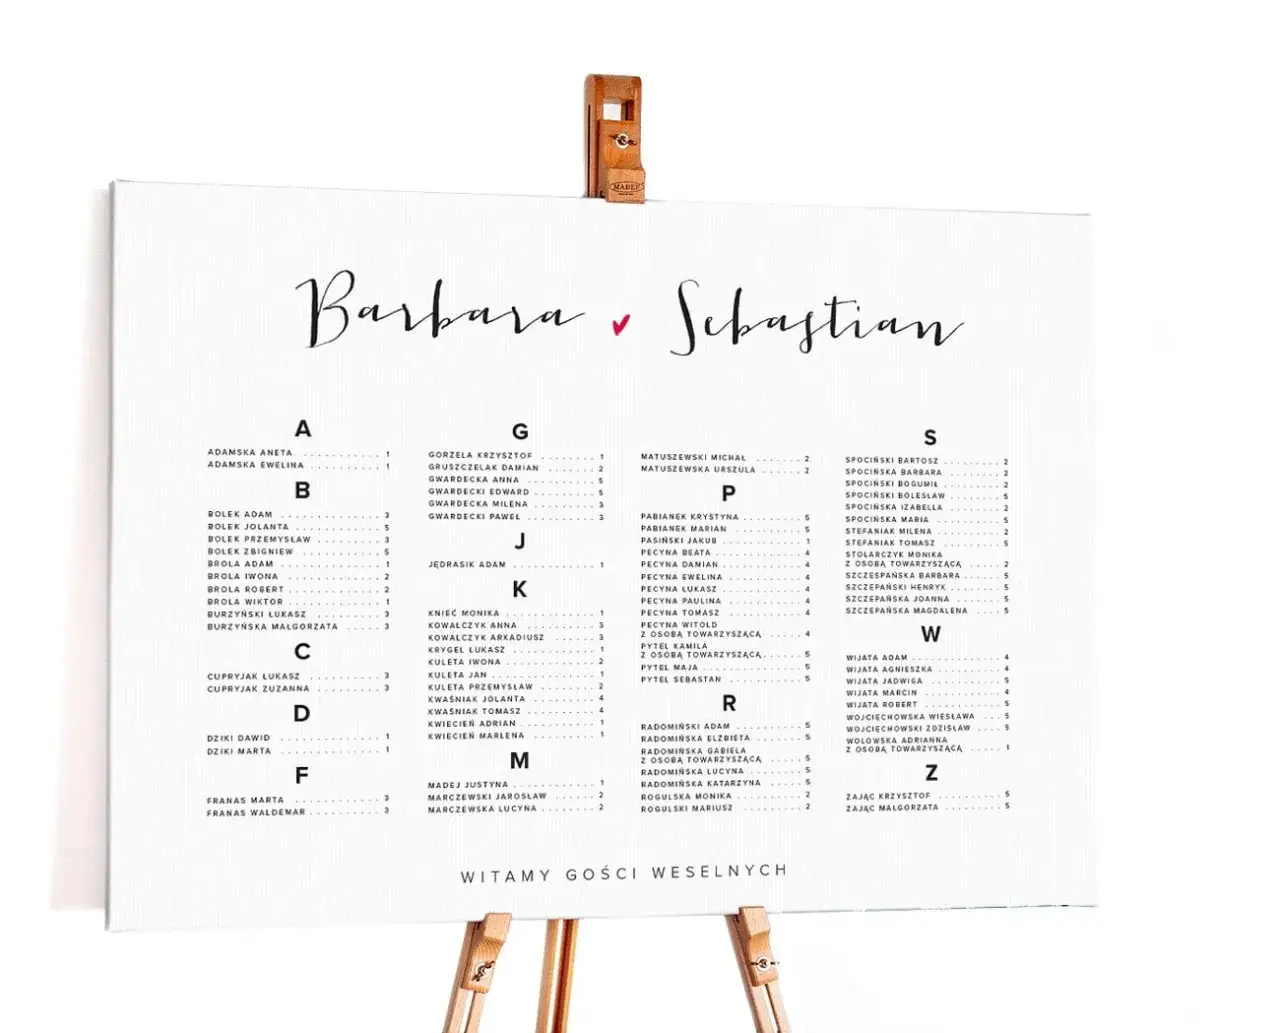 MABEF
Barbara Sebastian
A
ADAMSKA ANETA . . . . . . . . . . . 1
ADAMSKA EWELINA . . . . . . . . . . 1
B
BOLEK ADAM . . . . . . . . . . . . 3
BOLEK JOLANTA . . . . . . . . . . 5
BOLEK PRZEMYSŁAW . . . . . . . . 3
BOLEK ZBIGNIEW . . . . . . . . . . 5
BROLA ADAM . . . . . . . . . . . . 1
BROLA IWONA . . . . . . . . . . . 2
BROLA ROBERT . . . . . . . . . . . 2
BROLA WIKTOR . . . . . . . . . . . 1
BURZYŃSKI ŁUKASZ . . . . . . . . 3
BURZYŃSKA MAŁGORZATA . . . . . 3
C
CUPRYJAK ŁUKASZ . . . . . . . . . 3
CUPRYJAK ZUZANNA . . . . . . . . 3
D
DZIKI DAWID . . . . . . . . . . . . 1
DZIKI MARTA . . . . . . . . . . . . 1
F
FRANAS MARTA . . . . . . . . . . . 3
FRANAS WALDEMAR . . . . . . . . . 3
G
GORZELA KRZYSZTOF . . . . . . . 1
GRUSZCZELAK DAMIAN . . . . . . . 2
GWARDECKA ANNA . . . . . . . . . 5
GWARDECKI EDWARD . . . . . . . . 5
GWARDECKA MILENA . . . . . . . . 3
GWARDECKI PAWEŁ . . . . . . . . . 3
J
JĘDRASIK ADAM . . . . . . . . . . 1
K
KNIEĆ MONIKA . . . . . . . . . . . 1
KOWALCZYK ANNA . . . . . . . . . 3
KOWALCZYK ARKADIUSZ . . . . . . 3
KRYGEL ŁUKASZ . . . . . . . . . . 1
KULETA IWONA . . . . . . . . . . . 2
KULETA JAN . . . . . . . . . . . . 1
KULETA PRZEMYSŁAW . . . . . . . 2
KWAŚNIAK JOLANTA . . . . . . . . 4
KWAŚNIAK TOMASZ . . . . . . . . . 4
KWIECIEŃ ADRIAN . . . . . . . . . 1
KWIECIEŃ MARLENA . . . . . . . . 1
M
MADEJ JUSTYNA . . . . . . . . . . 1
MARCZEWSKI JAROSŁAW . . . . . . 2
MARCZEWSKA LUCYNA . . . . . . . 2
MATUSZEWSKI MICHAŁ . . . . . . . 2
MATUSZEWSKA URSZULA . . . . . . 2
P
PABIANEK KRYSTYNA . . . . . . . . 5
PABIANEK MARIAN . . . . . . . . . 5
PASIŃSKI JAKUB . . . . . . . . . . 1
PECYNA BEATA . . . . . . . . . . . 4
PECYNA DAMIAN . . . . . . . . . . 4
PECYNA EWELINA . . . . . . . . . 4
PECYNA ŁUKASZ . . . . . . . . . . 4
PECYNA PAULINA . . . . . . . . . 4
PECYNA TOMASZ . . . . . . . . . . 4
PECYNA WITOLD
Z OSOBĄ TOWARZYSZĄCĄ . . . . . 4
PYTEL KAMILA
Z OSOBĄ TOWARZYSZĄCĄ . . . . . 5
PYTEL MAJA . . . . . . . . . . . . 5
PYTEL SEBASTAN . . . . . . . . . 5
R
RADOMIŃSKI ADAM . . . . . . . . . 5
RADOMIŃSKA ELŻBIETA . . . . . . . 5
RADOMIŃSKA GABIELA
Z OSOBĄ TOWARZYSZĄCĄ . . . . . 5
RADOMIŃSKA LUCYNA . . . . . . . 5
RADOMIŃSKA KATARZYNA . . . . . 5
ROGULSKA MONIKA . . . . . . . . . 2
ROGULSKI MARIUSZ . . . . . . . . 2
S
SPOCIŃSKI BARTOSZ . . . . . . . . 2
SPOCIŃSKA BARBARA . . . . . . . . 2
SPOCIŃSKI BOGUMIŁ . . . . . . . . 2
SPOCIŃSKI BOLESŁAW . . . . . . . 5
SPOCIŃSKA IZABELLA . . . . . . . 2
SPOCIŃSKA MARIA . . . . . . . . . 5
STEFANIAK MILENA . . . . . . . . . 2
STEFANIAK TOMASZ . . . . . . . . 5
STOLARCZYK MONIKA
Z OSOBĄ TOWARZYSZĄCĄ . . . . . 2
SZCZESPAŃSKA BARBARA . . . . . 5
SZCZEPAŃSKI HENRYK . . . . . . . 5
SZCZEPAŃSKA JOANNA . . . . . . . 5
SZCZEPAŃSKA MAGDALENA . . . . 5
W
WIJATA ADAM . . . . . . . . . . . 4
WIJATA AGNIESZKA . . . . . . . . 4
WIJATA JADWIGA . . . . . . . . . . 5
WIJATA MARCIN . . . . . . . . . . 4
WIJATA ROBERT . . . . . . . . . . 5
WOJCIECHOWSKA WIESŁAWA . . . 5
WOJCIECHOWSKI ZDZISŁAW . . . . 5
WOLOWSKA ADRIANNA
Z OSOBĄ TOWARZYSZĄCĄ . . . . . 1
Z
ZAJĄC KRZYSZTOF . . . . . . . . . 5
ZAJĄC MAŁGORZATA . . . . . . . . 5
WITAMY GOŚCI WESELNYCH